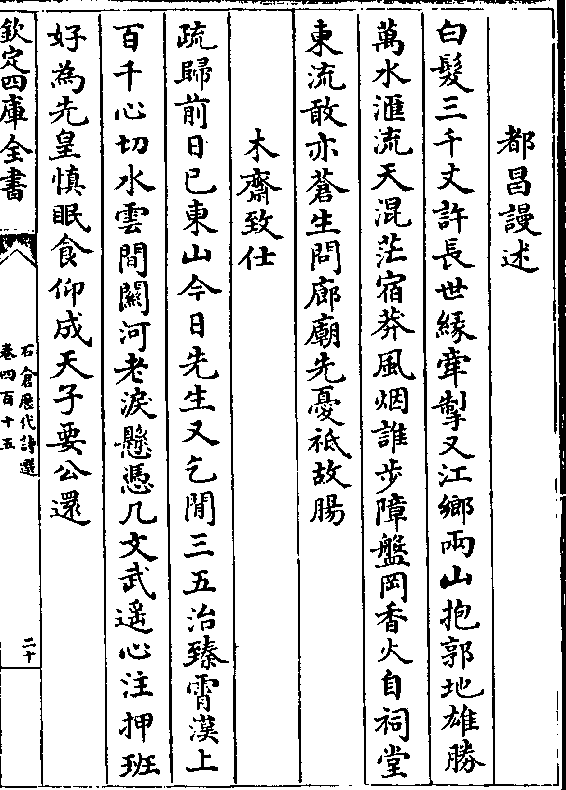 都昌謾述
白髮三千丈許長世縁牽掣又江鄉兩山抱郭地雄勝
萬水滙流天混茫宿莽風烟誰步障盤岡香火自祠堂
東流敢亦蒼生問廊廟先憂祇故腸
木齋致仕
疏歸前日已東山今日先生又乞閒三五治臻霄漢上
百千心切水雲間闗河老淚懸憑几文武遥心注押班
好為先皇慎眠食仰成天子要公還
欽定四庫全書
石倉歴代詩選
卷四百十五
二十